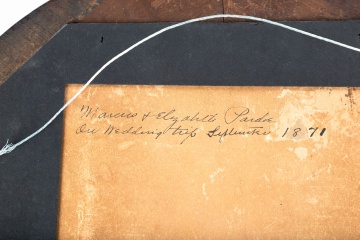 Marcus & Elizabeth Pardee
On Wedding trip September 1871